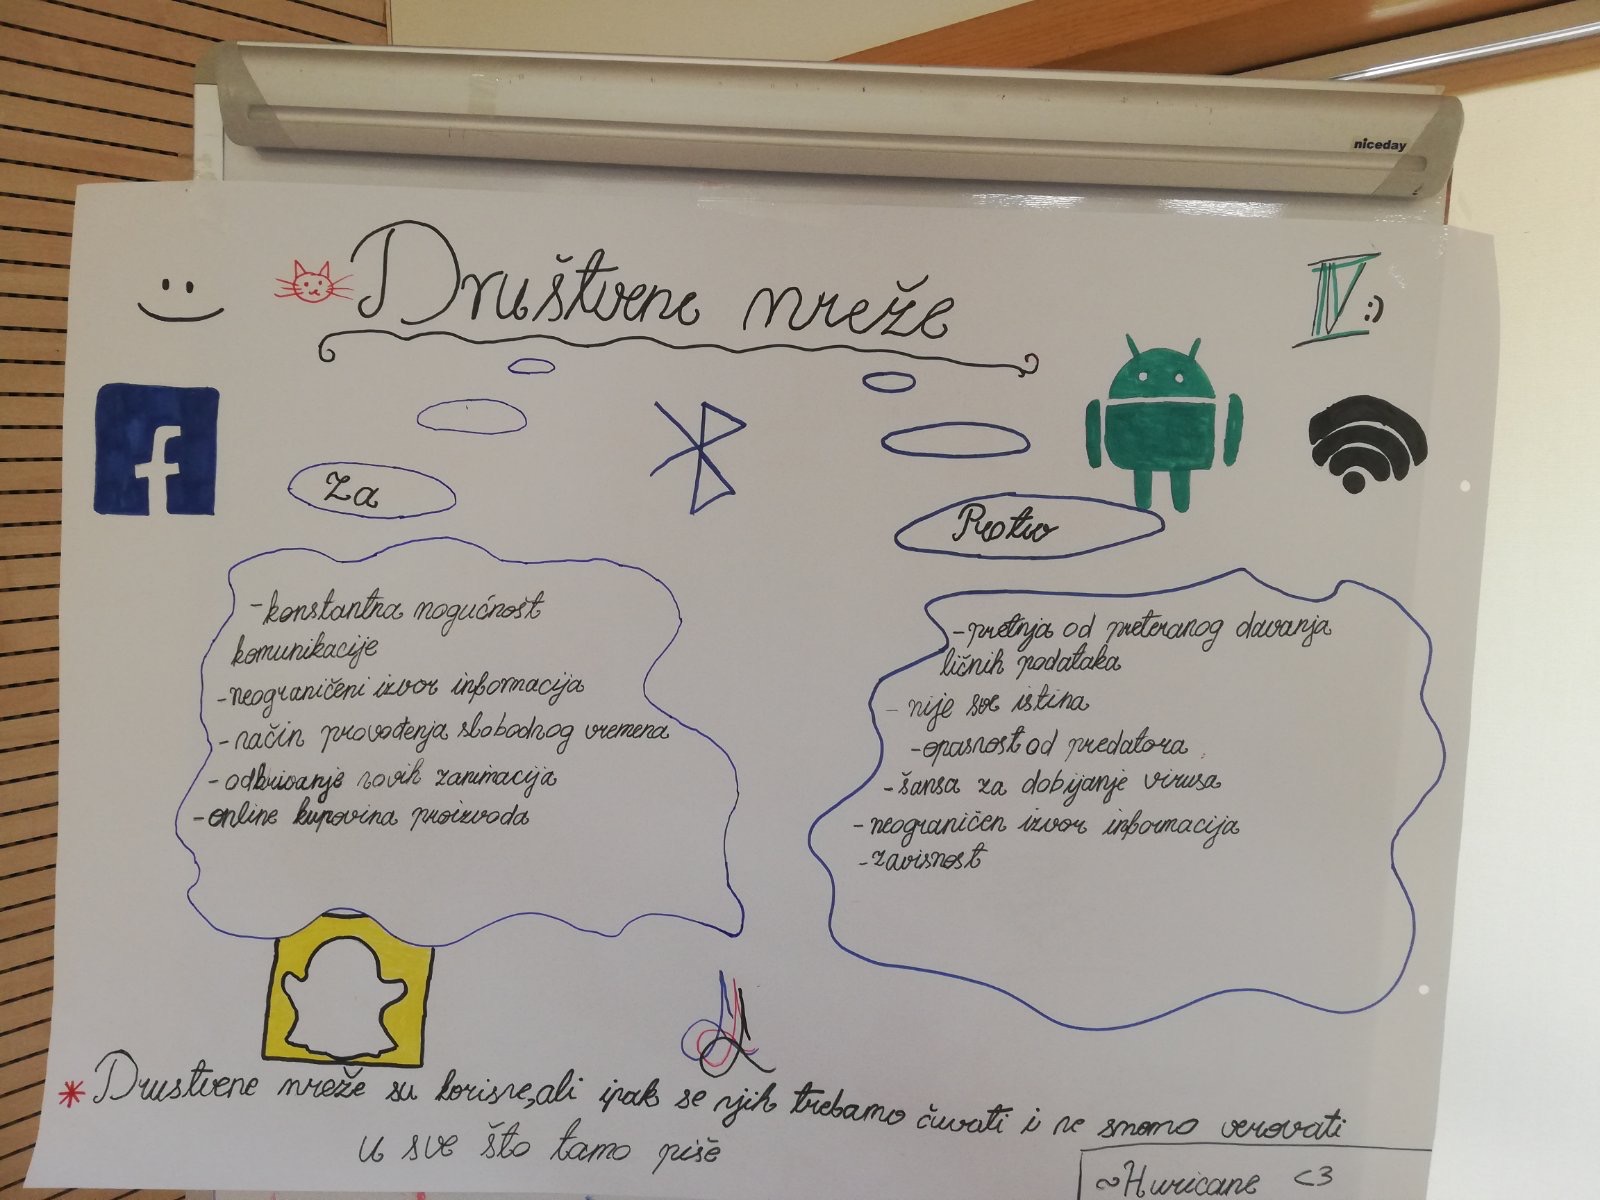 niceday
Društvene mreže
IV :)
f
Za
Protiv
-konstantna mogućnost
komunikacije
-neograničeni izvor informacija
-način provođenja slobodnog vremena
-odkrivanje novih zanimacija
-online kupovina proizvoda
-pretnja od preteranog davanja
ličnih podataka
- nije sve istina
-opasnost od predatora
-šansa za dobijanje virusa
-neograničen izvor informacija
-zavisnost
* Drustvene mreže su korisne, ali ipak se njih trebamo čuvati i ne smemo verovati
u sve što tamo piše
~Huricane <3